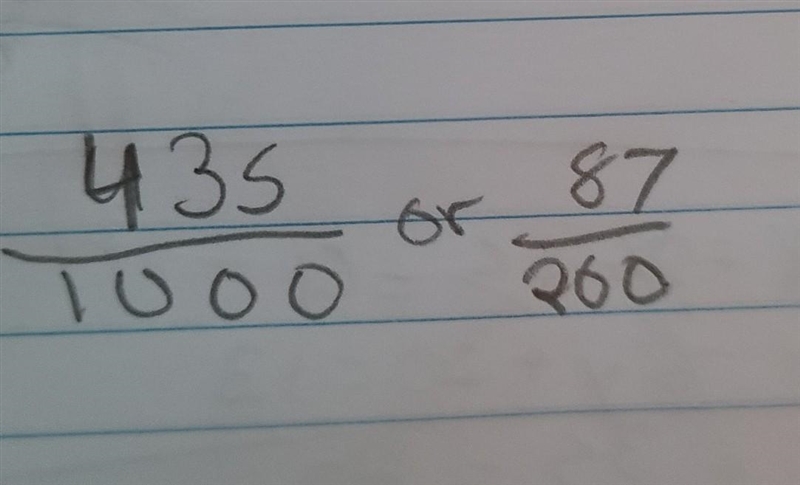 435/1000 or 87/200